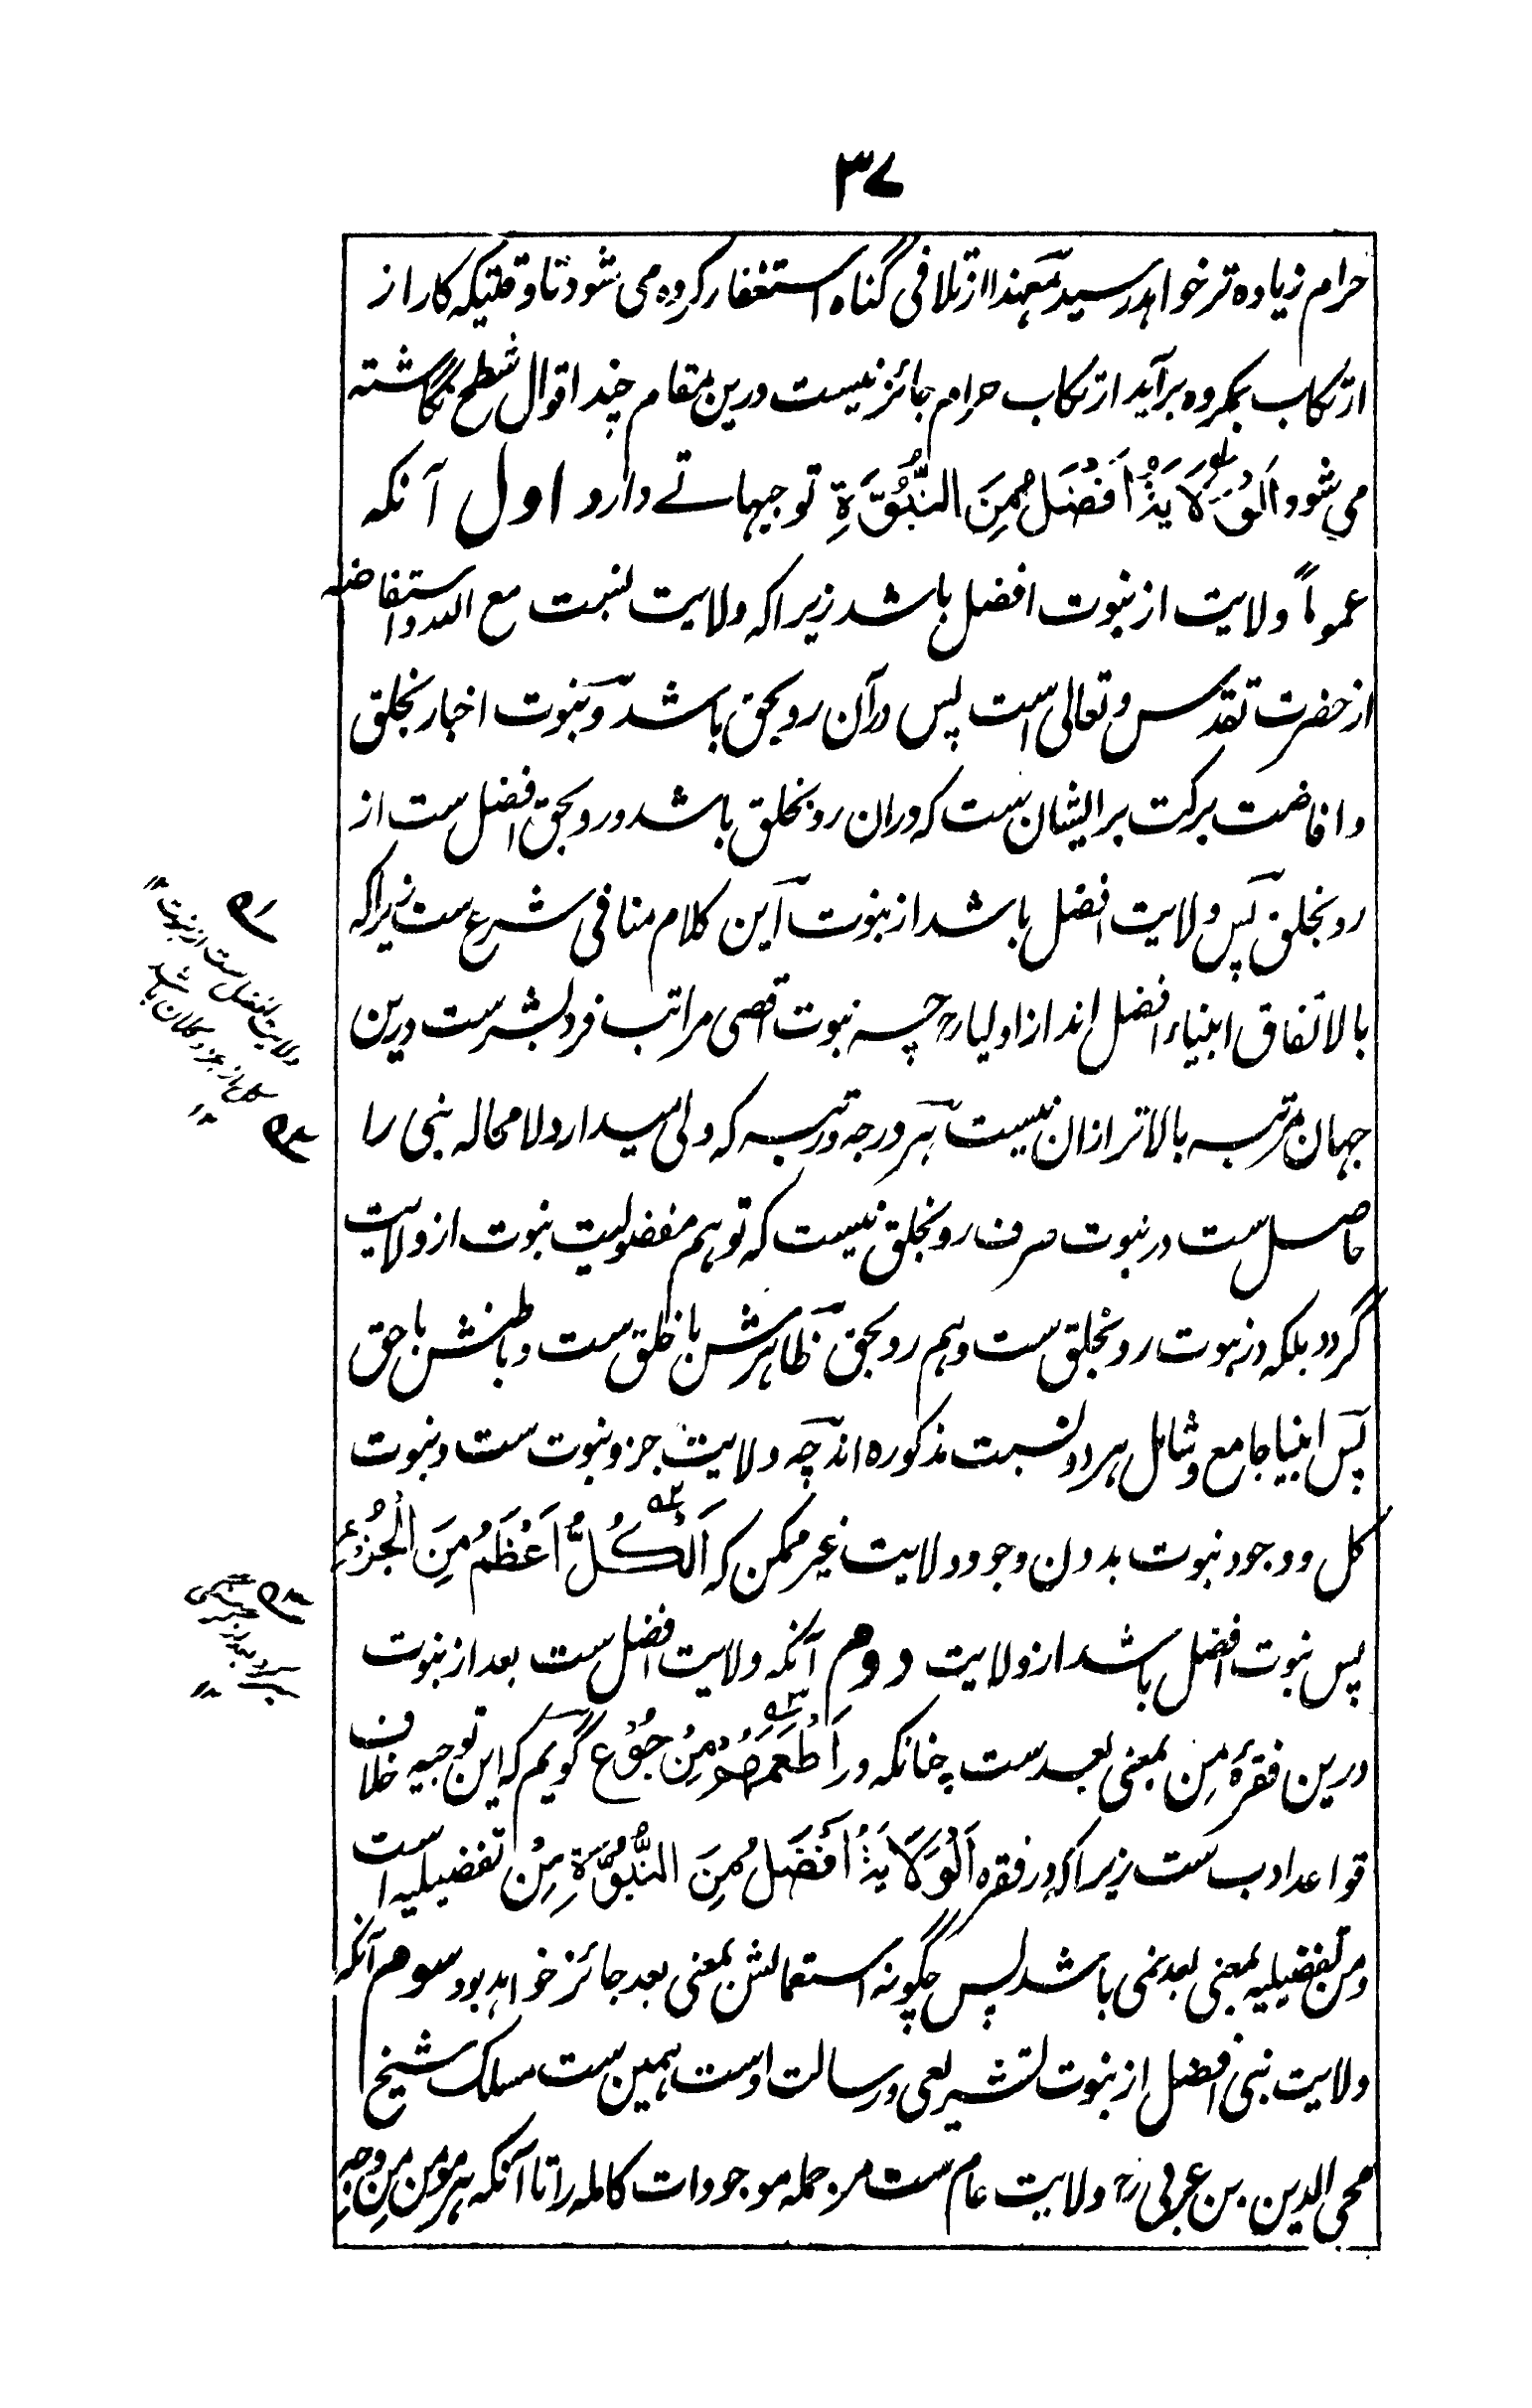 ۳۷
حرام زیاده تر خواهد رسید معهذا از تلافی گناه استغفار کرده می شود تا وقتیکه کار از
ارتکاب مکروه برآید ارتکاب حرام جائز نیست درین مقام چند اقوال شطح نگاشته
می شود اَلْوِلَایَةُ اَفْضَلُ مِنَ النُّبُوَّةِ توجیهاتے دارد اول آنکه
عموماً ولایت از نبوت افضل باشد زیراکه ولایت نسبت مع الله و استفاضه
از حضرت تقدس و تعالی است پس درآن رو بحق باشد و نبوت اخبار بخلق
و افاضت برکت بر ایشان ست که دران رو بخلق باشد و رو بحق افضل ست از
رو بخلق پس ولایت افضل باشد از نبوت این کلام منافی شرع ست زیراکه
بالاتفاق انبیاء افضل اند از اولیا رح چه نبوت اقصی مراتب فرد بشر ست درین
جهان مرتبه بالاتر ازان نیست هر درجه و رتبه که ولی میدارد لامحاله نبی را
حاصل ست در نبوت صرف رو بخلق نیست که توهم مفضولیت نبوت از ولایت
گردد بلکه در نبوت رو بخلق ست و هم رو بحق ظاهرش با خلق ست و باطنش با حق
پس انبیا جامع و شامل هر دو نسبت مذکوره اند چه ولایت جزو نبوت ست و نبوت
کل و وجود نبوت بدون وجود ولایت غیر ممکن که اَلْکُلُّ اَعْظَمُ مِنَ الْجُزْءِ
پس نبوت افضل باشد از ولایت دوم آنکه ولایت افضل ست بعد از نبوت
درین فقرهٔ مِن بمعنی بعد ست چنانکه در اَطْعَمَهُمْ مِنْ جُوْعٍ گویم که این توجیه خلاف
قواعد ادب ست زیراکه در فقره اَلْوَلَایَةُ اَفْضَلُ مِنَ النُّبُوَّةِ مِنْ تفضیلیه است
و من تفضیلیه بمعنی بعد نمی باشد پس چگونه استعمالش بمعنی بعد جائز خواهد بود سوم آنکه
ولایت نبی افضل از نبوت تشریعی و رسالت اوست همین ست مسلک شیخ
محی الدین بن عربی رح ولایت عام ست مر جمله موجودات کامله را تا آنکه هر مومن من وجه
ولایت افضل ست از نبوت ۱۲
کل از جزو کلان باشد
۱۲